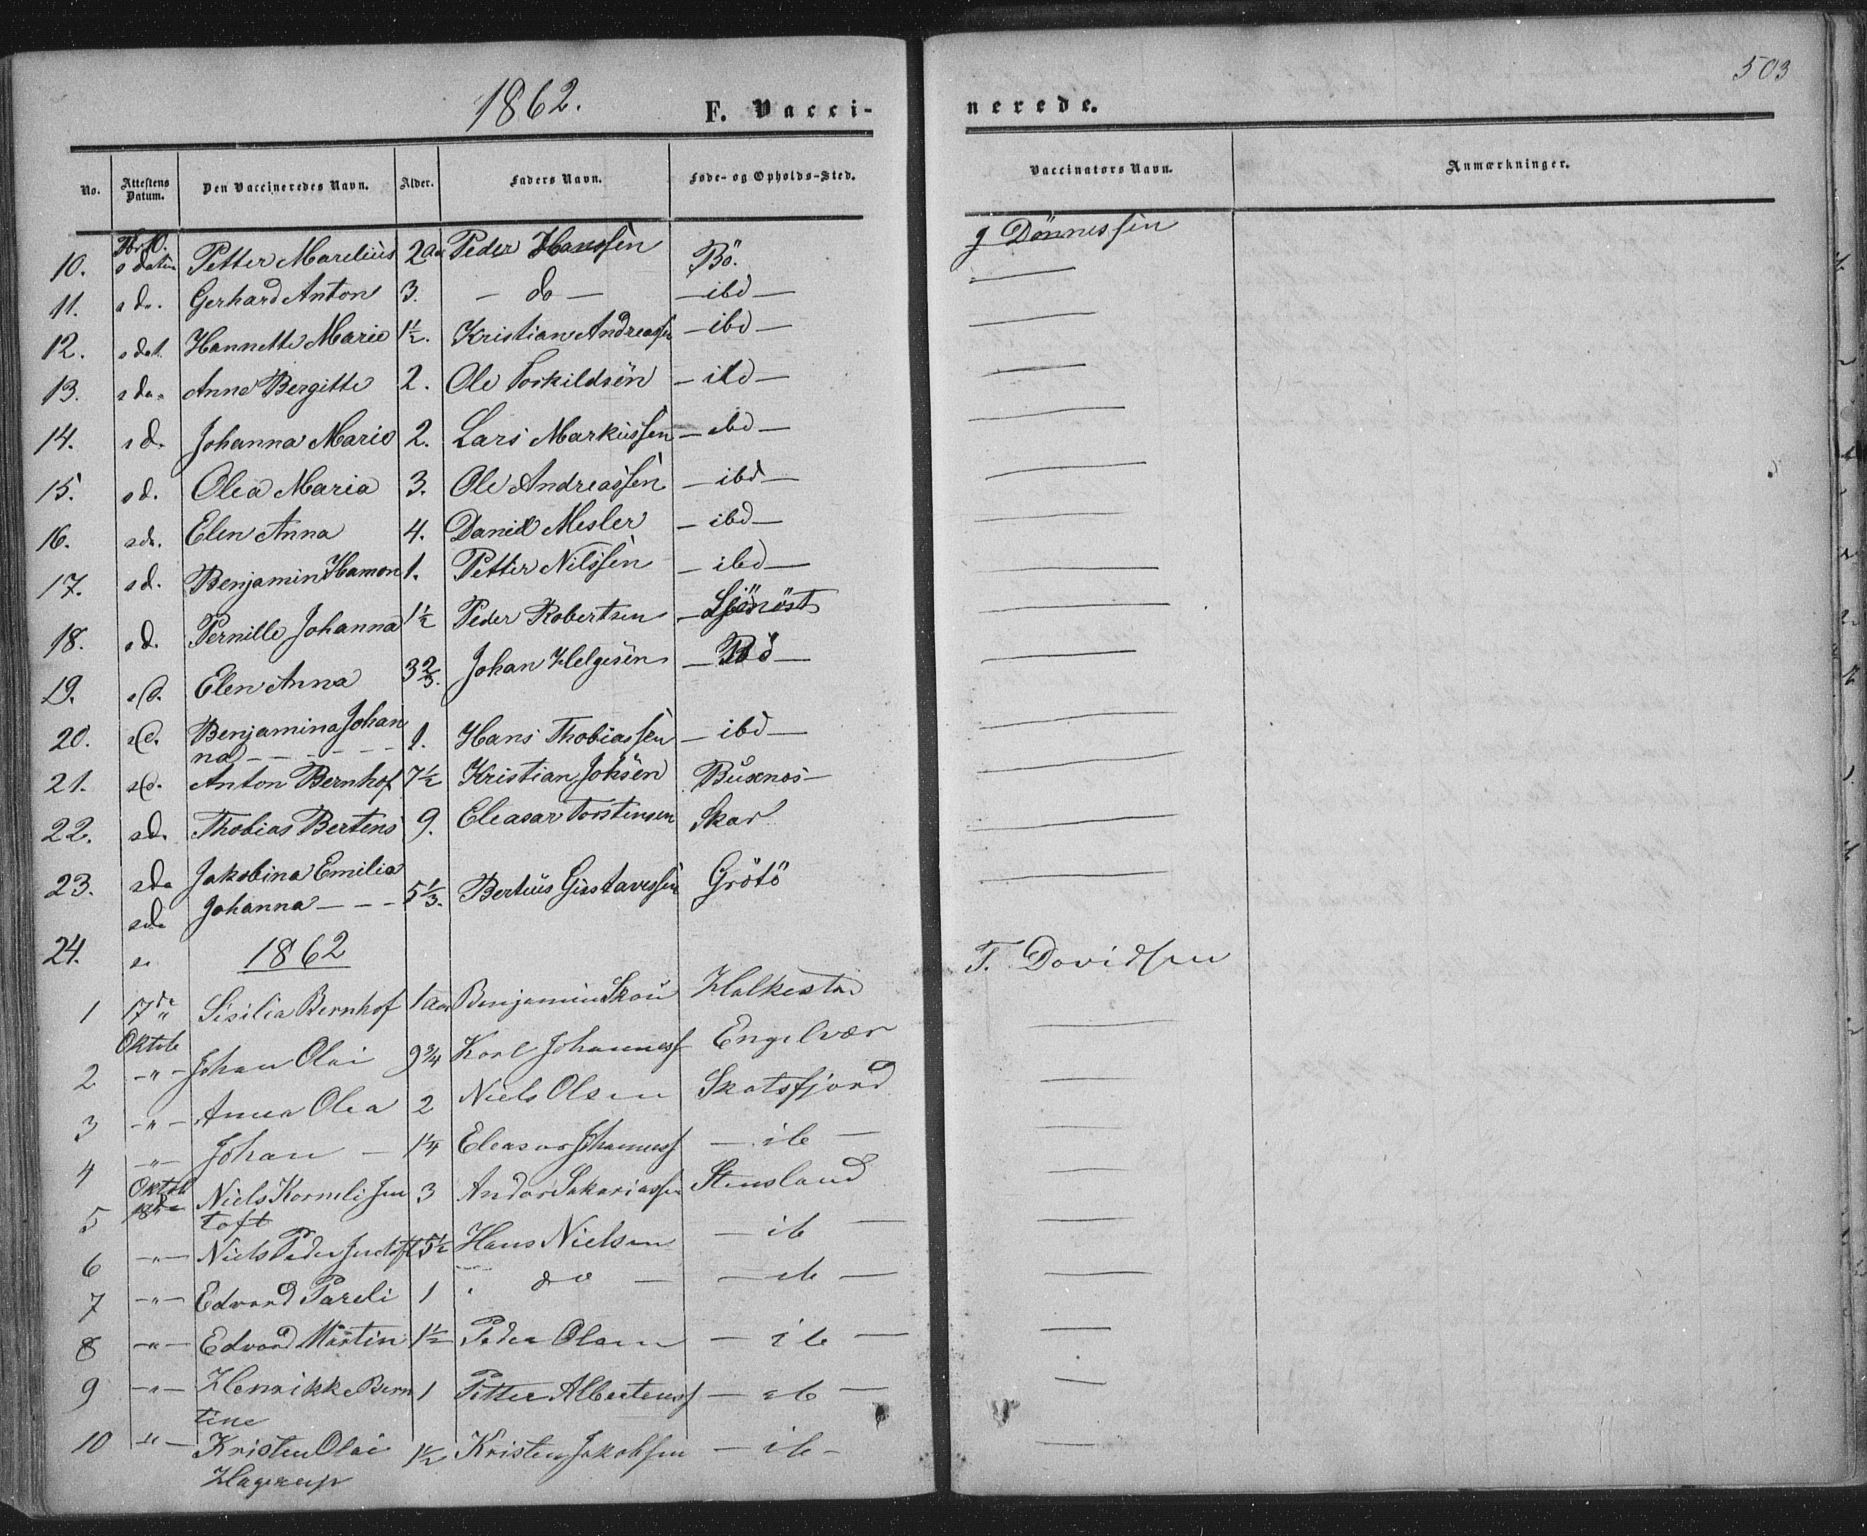 503
1862.
F. Vacci-
nerede.
No.
Attestens Datum.
Den Vaccineredes Navn.
Alder.
Faders Navn.
Føde- og Opholds-Sted.
Vaccinators Navn.
Anmærkninger.
10. Petter Marelius 2 aar Peder Hanssen Bö. Dönnessen
11. s d. Gerhard Anton 3. — do — — ibd —
12. s dat. Hannette Marie 1½. Kristian Andreass — ibd —
13. s da. Anne Bergitte 2. Ole Torkildsen — ibd —
14. s d. Johanna Marie 2. Lars Markussen — ibd —
15. s d. Olea Maria 3. Ole Andreassen — ibd —
16. s d. Elen Anna 4. Daniel Mesler — ibd —
17. s d. Benjamin Hamon 1. Petter Nilssen — ibd —
18. s d. Pernille Johanna 1½ Peder Robertsen
19. s d. Elen Anna 3⅔. Johan Helgesen — Bö —
20. s d. Benjamina Johan 1. Hans Thobiassen — ibd —
na - - - -
21. s d. Anton Bernhof 7½ Kristian Joksen
22. s d. Thobias Bertens 9. Eleasar Torstensen Skar
23. s da Jakobina Emilia 5⅓. Bertius Gustavessen Grötö
s da Johanna - - -
24. s. 1862 T. Davidsen
1 17de Sisilia Bernhof 1 aar Benjamin Skau Halkestad
Oktob
2 - " - Johan Olai 9¾ Karl Johanness Engelvær
3 - " - Anna Olea 2 Niels Olsen Skatsfjord
4 - " - Johan — 1¼ Eleasar Johanness — ib —
Oktob
5 18de Niels Korneli Jen 3 Andor Sakariassen Stensland
toft
6 - " - Niels Peder Jentoft 5½ Hans Nielsen — ib —
7 - " - Edvard Pareli 1 " do — — ib —
8 - " - Edvard Martin 1½ Peder Olsen — ib —
9 - " - Henrikke Bern 1 Petter Albertenss — ib —
tine
10 - " - Kristen Olai 1½ Kristen Jakobsen — ib -
Hagerup